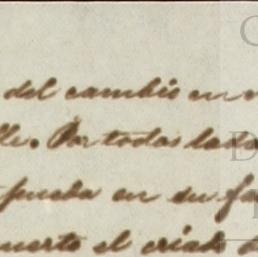 del cambio en
lle. Por todos lados
pueda en su fa
muerto el criado d